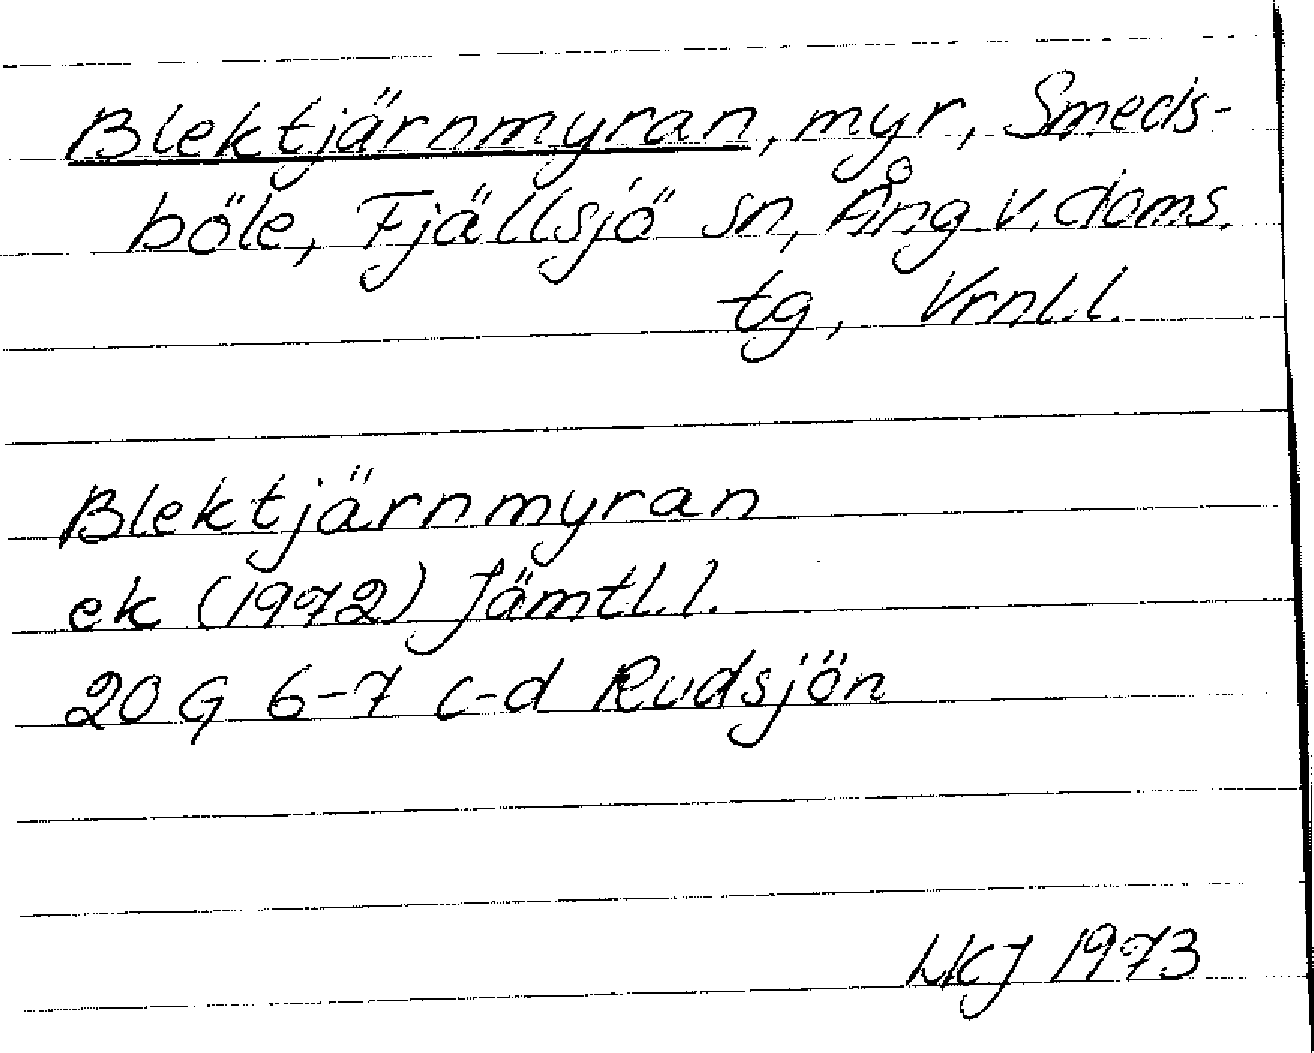 Blektjärnmyran, myr, Smeds-
böle, Fjällsjö sn, Ång v. doms.
tg, Vrnl.l.
Blektjärnmyran
ek (1972) Jämtl.l.
20 G 6-7 c-d Rudsjön
LKJ 1973